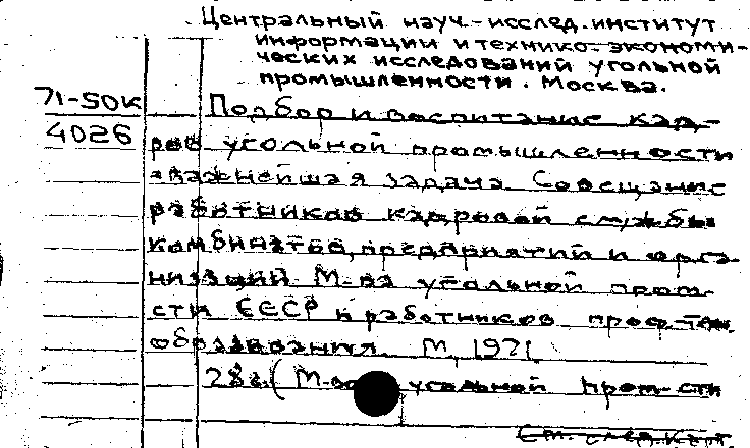 Центральный науч.-исслед. институт
информации и технико-экономи-
ческих исследований угольной
промышленности. Москва.
71-50к
4026
Подбор и воспитание кад-
ров угольной промышленности
- важнейшая задача. Совещание
работников кадровой службы
комбинатов, предприятий и орга-
низаций М-ва угольной пром-
сти СССР и работников проф-тех.
образования. М., 1971.
28 с. (М-во угольной пром-сти
См. след. карт.